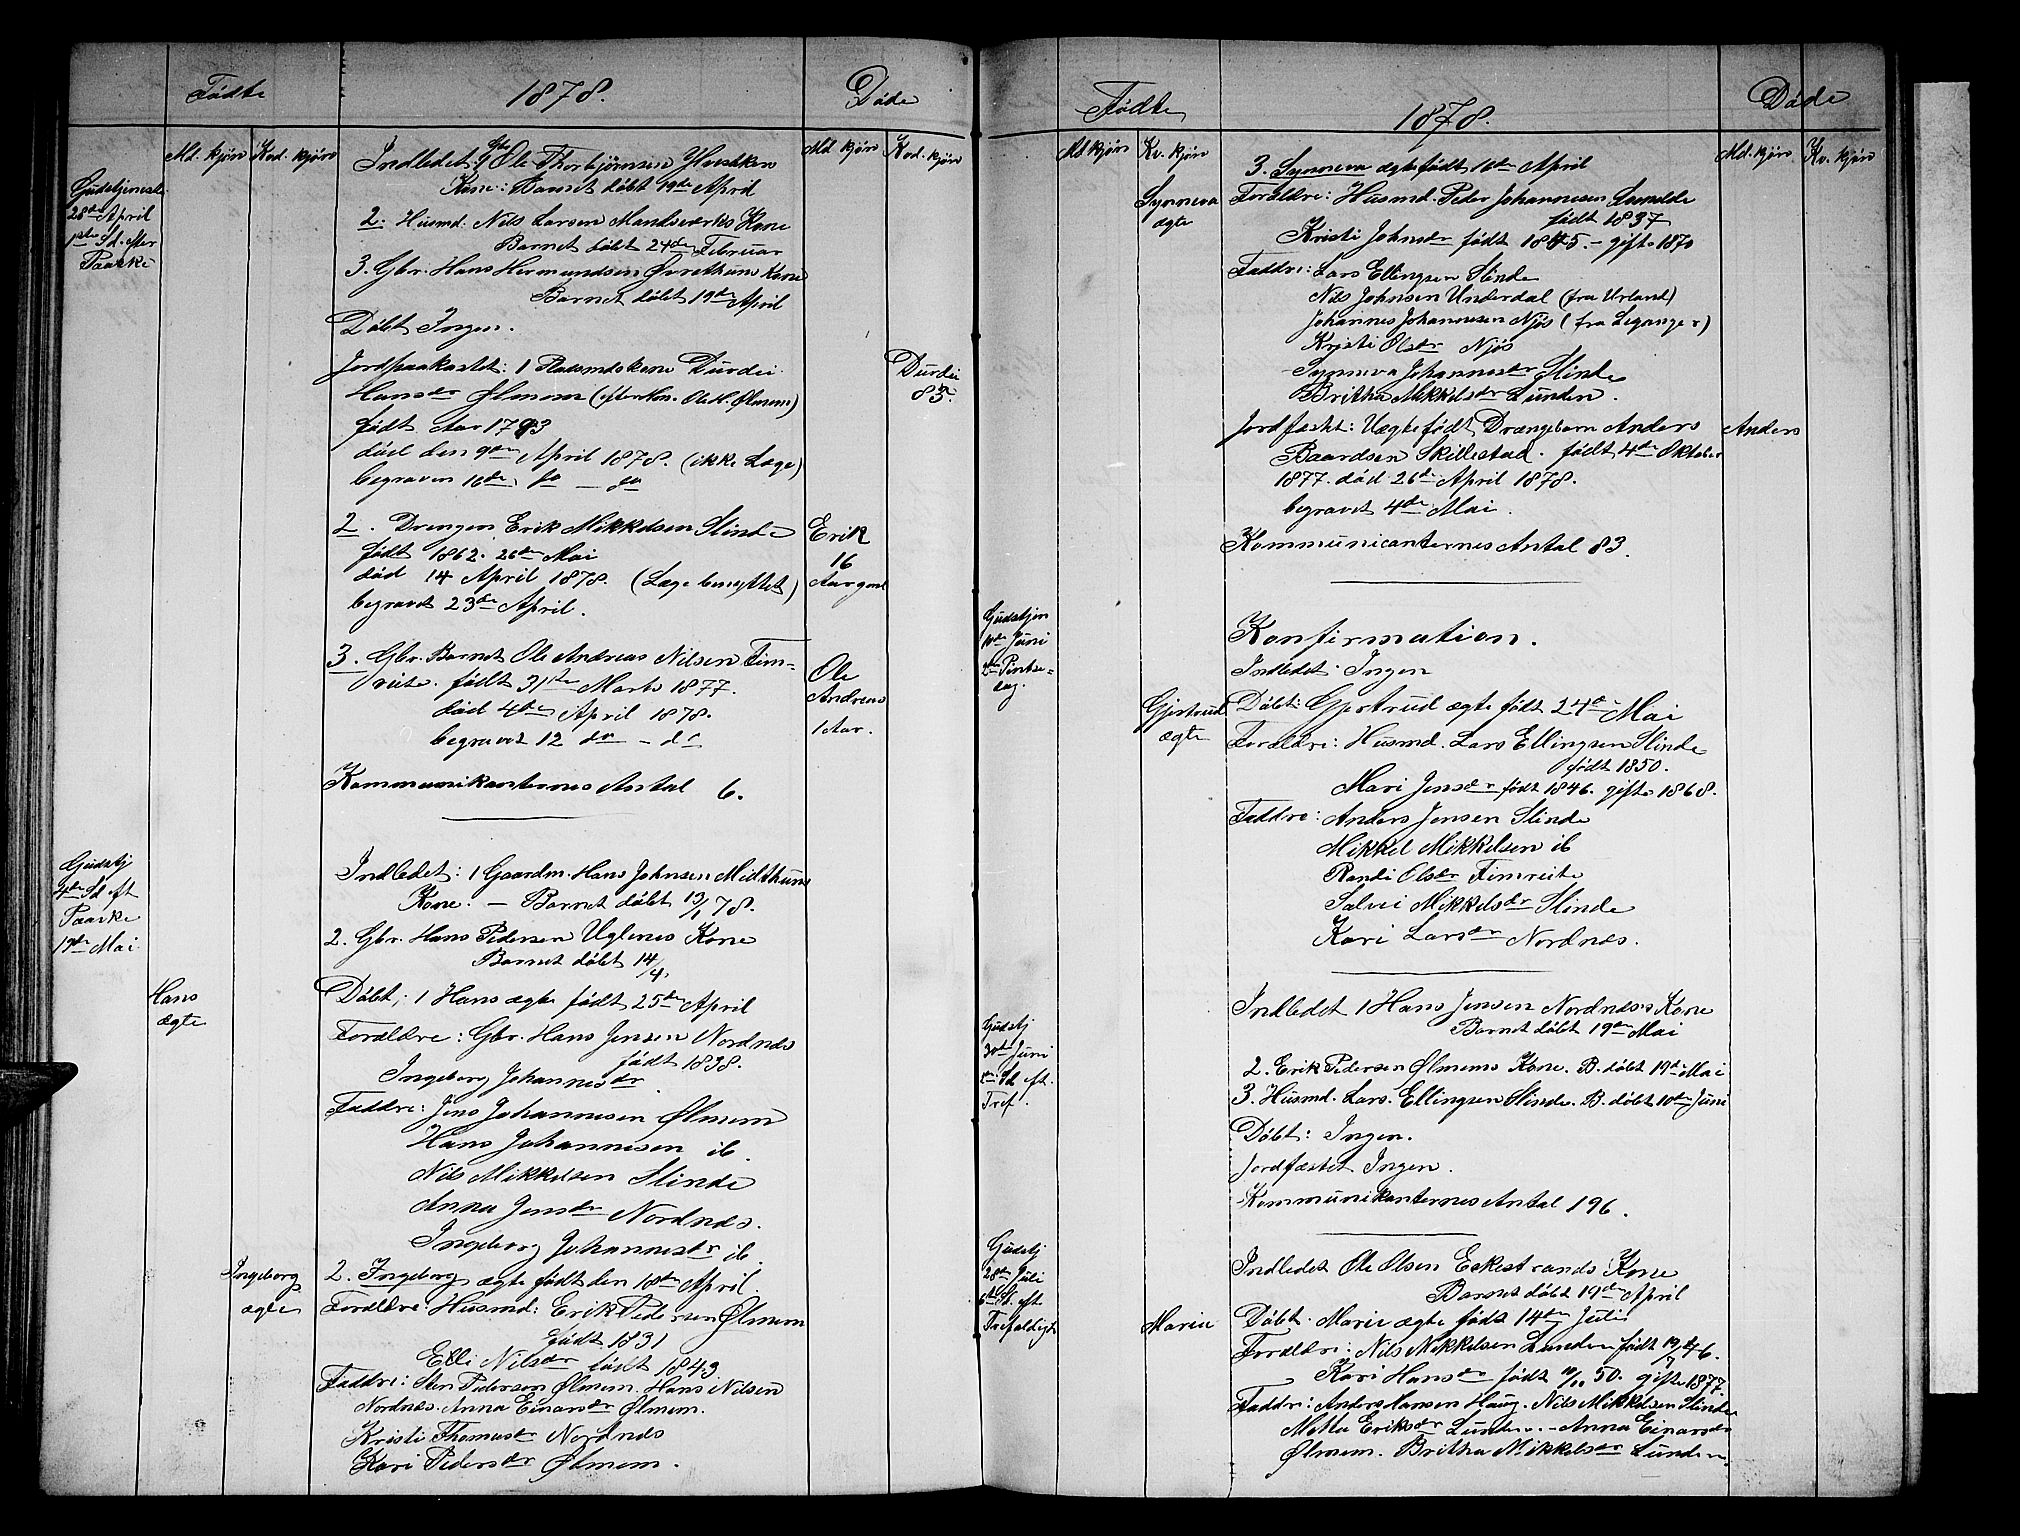 Fødte 1878. Døde
Md. kjøn Kvd. kjøn Md kjøn Kvd. kjøn
Gudstjeneste
28de April
1ste Sd. efter
Paaske
Indledet Gbr Ole Thorbjørnsen
Kone: Barnet døbt 19de April
2. Husmd: Nils Larsen Mandsverks Kone
Barnet døbt 24de Februar
3. Gbr. Hans Hermundsen Øvrethuns Kone
Barnet døbt 19de April
Døbt Ingen.
Jordpaakastet: 1 Pladsmdskone Durdei
Hansdr Ølmem (efter Hm. Ole H. Ølmem)
født Aar 1793
død den 9de April 1878. (ikke Læge)
begraven 16de do — do
Durdei
85.
2. Drengen Erik Mikkelsen Slinde
født 1862. 26de Mai
død 14 April 1878. (Læge benyttet)
begravet 23de April.
Erik
16
Aar gml
3. Gbr. Barnet Ole Andreas Nilsen Fim-
reite. født 31te Marts 1877.
død 4de April 1878.
begravet 12 do - do
Ole
Andreas
1 Aar.
Kommunikanternes Antal 6.
Gudstj
4de Sd. eft
Paaske
19de Mai
Indledet: 1 Gaardm. Hans Johnsen Midthuns
Kone. — Barnet døbt 13/1 78.
2. Gbr. Hans Pedersen Uglenes Kone
Barnet døbt 14/4.
Hans
ægte
Døbt: 1 Hans ægte født 25de April
Forældre: Gbr. Hans Jensen Nordnæs
født 1838.
Ingeborg Johannesdr
Faddre: Jens Johannesen Ølmem
Hans Johannesen ib.
Nils Mikkelsen Slinde
Anna Jensdr Nordnæs.
Ingeborg Johannesdr ib.
Ingeborg
ægte
2. Ingeborg ægte født den 18de April.
Forældre Husmd: Erik Pedersen Ølmem
født 1831
Elli Nilsdr født 1843
Faddre: Sten Pedersen Ølmem. Hans Nilsen
Nordnæs. Anna Einarsdr Ølmem.
Kristi Thomasdr Nordnæs
Kari Pedersdr Ølmem.
Fødte 1878. Døde
Md kjøn Kv. kjøn Md. kjøn Kv. kjøn
Synneva
ægte
3. Synneva ægte født 16de April
Forældre: Husmd. Peder Johannesen
født 1837
Kristi Johnsdr født 1845. - gifte 1870
Faddre: Lars Ellingsen Slinde
Nils Johnsen Underdal (fra Urland)
Johannes Johannesen Njøs (fra Leganger)
Kristi Olsdr Njøs
Synneva Johannesdr Slinde
Britha Mikkelsdr Lunden.
Jordfæstet: Uægtefødt Drengebarn Anders
Baardsen Skillestad. født 4de Oktober
1877. død 26de April 1878.
begravet 4de Mai.
Anders
Kommunicanternes Antal 83.
Gudstjen
10de Juni
2den Pintse-
dag.
Konfirmation.
Indledet Ingen
Gjertrud
ægte
Døbt: Gjertrud ægte født 24de Mai
Forældre: Husmd. Lars Ellingsen Slinde
født 1850.
Mari Jensdr født 1846. gifte 1868.
Faddre: Anders Jensen Slinde
Mikkel Mikkelsen ib
Randi Olsdr Fimreite
Salvei Mikkelsdr Slinde
Kari Larsdr Nordnæs.
Gudstj
30te Juni
Sd eft.
Tref.
Indledet 1 Hans Jensen Nordnæs's Kone
Barnet døbt 19de Mai
2. Erik Pedersen Ølmems Kone. B. døbt 19de Mai
3. Husmd. Lars Ellingsen Slinde. B. døbt 10de Juni
Døbt: Ingen.
Jordfæstet Ingen.
Kommunikanternes Antal 196.
Gudstj
28de Juli
6te Sd. eft
Trefoldigh
Indledet Ole Olsen Eskestrands Kone
Barnet døbt 19de April
Marie
Døbt. Marie ægte født 14de Juli
Forældre: Nils Mikkelsen Lunden født 19/7 46.
Kari Hansdr født 50. gifte 1877.
Faddre: Anders Hansen Haug. Nils Mikkelsen Slinde
Metta Eriksdr Lunden. - Anna Einarsdr
Ølmem. Britha Mikkelsdr Lunden.